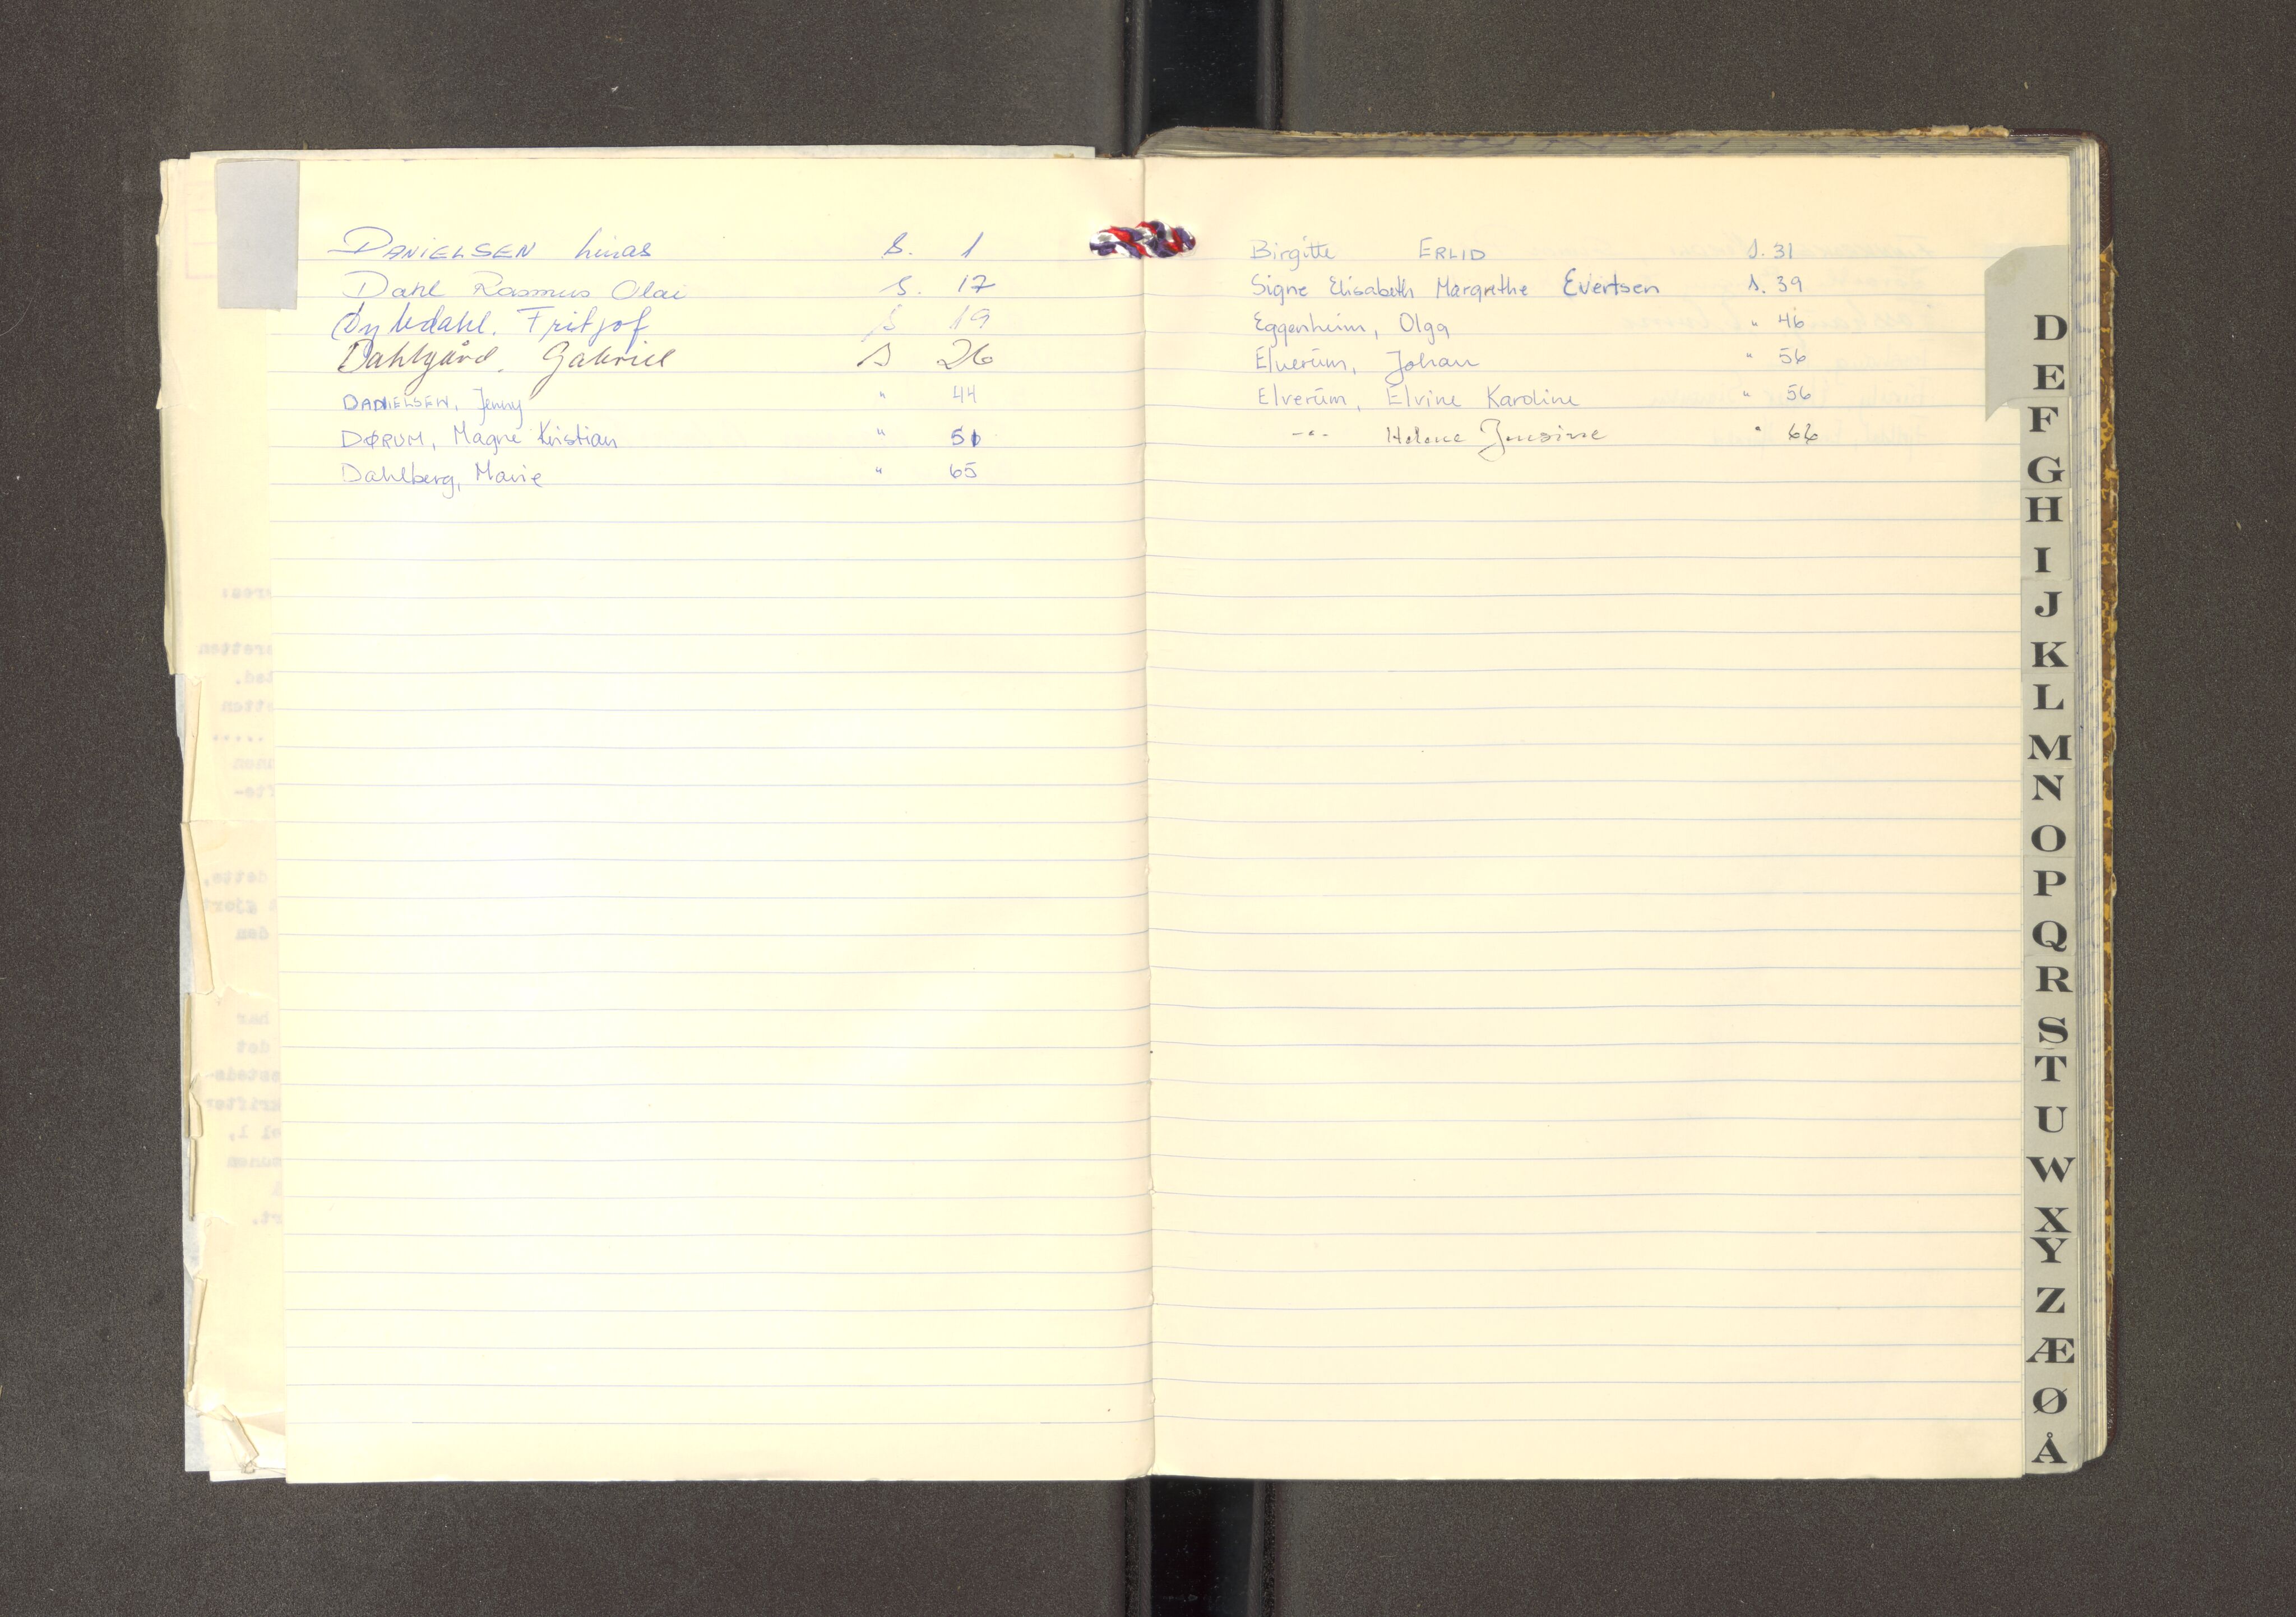 DANIELSEN Linas S. 1
Dahl Rasmus Olai S. 17
Dybdahl. Fritjof S 19
Dahlgård, Gabriel S 26
DANIELSEN, Jenny " 44
DØRUM, Magne Kristian " 51
Dahlberg, Marie " 65
Birgitte ERLID S. 31
Signe Elisabeth Margrethe Evertsen S. 39
Eggenheim, Olga " 46
Elverum, Johan " 56
Elverum, Elvine Karoline " 56
-"- Helene Jensine " 66
D
E
F
G
H
I
J
K
L
M
N
O
P
Q
R
S
T
U
W
X
Y
Z
Æ
Ø
Å